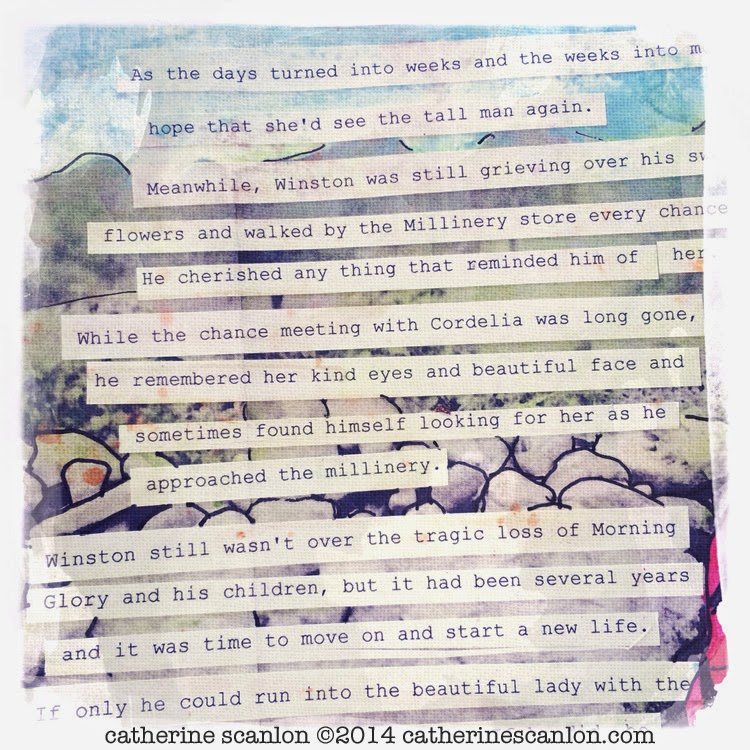 As the days turned into weeks and the weeks into
hope that she'd see the tall man again.
Meanwhile, Winston was still grieving over his
flowers and walked by the Millinery store every chance
He cherished any thing that reminded him of her
While the chance meeting with Cordelia was long gone,
he remembered her kind eyes and beautiful face and
sometimes found himself looking for her as he
approached the millinery.
Winston still wasn't over the tragic loss of Morning
Glory and his children, but it had been several years
and it was time to move on and start a new life.
If only he could run into the beautiful lady with the
catherine scanlon ©2014 catherinescanlon.com